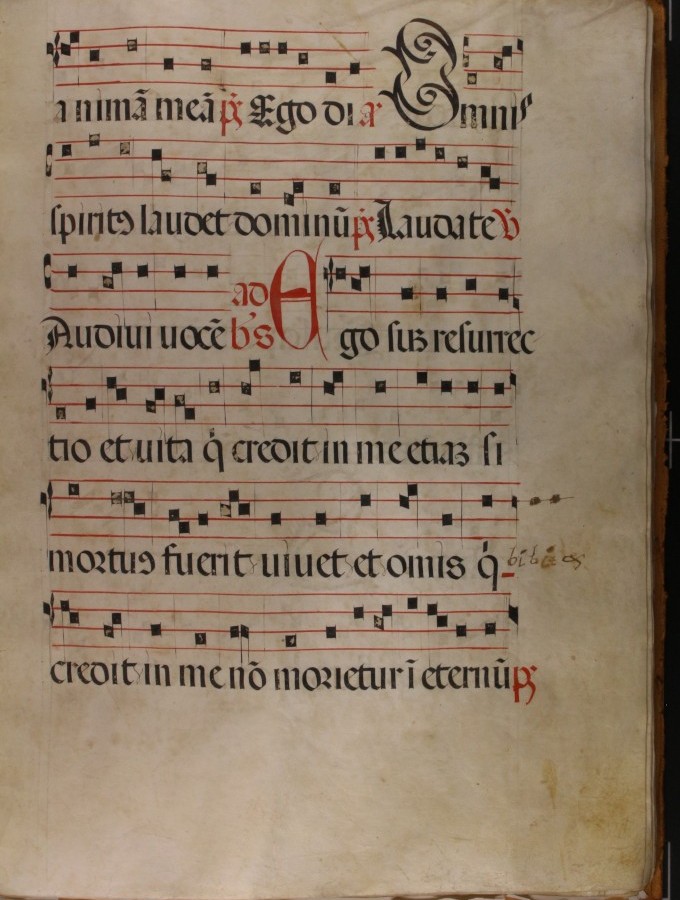 animā meā pȝ Ego di a Omnis
spiritꝰ laudet dominū pȝ Laudate V
Audiui uocē ad b's Ego suȝ resurrec
tio et uita q̇ credit in me etiaȝ si
mortuꝰ fuerit uiuet et omis q̇
credit in me nō morietur ī eternū pȝ